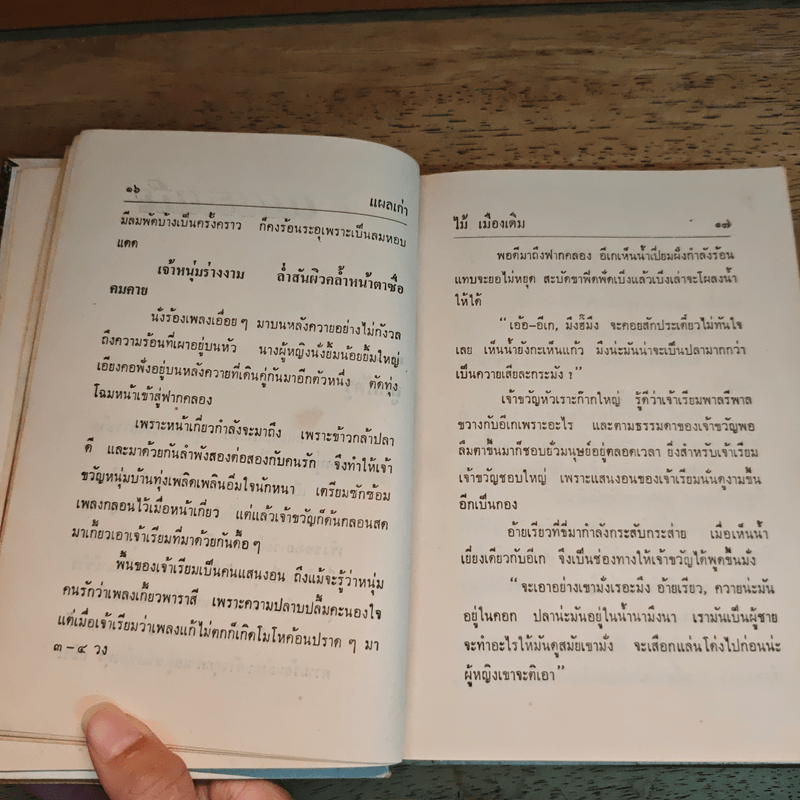 ๑๖ แผลเก่า
มีลมพัดบ้างเป็นครั้งคราว ก็คงร้อนระอุเพราะเป็นลมหอบ
แดด
เจ้าหนุ่มร่างงาม ล่ำสันผิวคล้ำหน้าตาซื่อ
คมคาย
นั่งร้องเพลงเอื่อย ๆ มาบนหลังควายอย่างไม่กังวล
ถึงความร้อนที่เผาอยู่บนหัว นางผู้หญิงนั่งยิ้มน้อยยิ้มใหญ่
เอียงคอฟังอยู่บนหลังควายที่เดินคู่กันมาอีกตัวหนึ่ง ตัดทุ่ง
โฉมหน้าเข้าสู่ฟากคลอง
เพราะหน้าเกี่ยวกำลังจะมาถึง เพราะข้าวกล้าปลา
ดี และมาด้วยกันลำพังสองต่อสองกับคนรัก จึงทำให้เจ้า
ขวัญหนุ่มบ้านทุ่งเพลิดเพลินอิ่มใจนักหนา เตรียมซักซ้อม
เพลงกลอนไว้เมื่อหน้าเกี่ยว แต่แล้วเจ้าขวัญก็ด้นกลอนสด
มาเกี้ยวเอาเจ้าเรียมที่มาด้วยกันดื้อ ๆ
พื้นของเจ้าเรียมเป็นคนแสนงอน ถึงแม้จะรู้ว่าหนุ่ม
คนรักว่าเพลงเกี้ยวพาราสี เพราะความปลาบปลื้มคะนองใจ
แต่เมื่อเจ้าเรียมว่าเพลงแก้ไม่ตกก็เกิดโมโหค้อนปราด ๆ มา
๓–๔ วง
ไม้ เมืองเดิม ๑๗
พอดีมาถึงฟากคลอง อีเกเห็นน้ำเปี่ยมฝั่งกำลังร้อน
แทบจะยอไม่หยุด สะบัดขาพืดพัดเบิ่งแล้วเบิ่งเล่าจะโผลงน้ำ
ให้ได้
“เอ้อ–อีเก, มึงฮึมึง จะคอยสักประเดี๋ยวไม่ทันใจ
เลย เห็นน้ำยังกะเห็นแก้ว มึงน่ะมันน่าจะเป็นปลามากกว่า
เป็นควายเสียละกระมัง ?”
เจ้าขวัญหัวเราะก๊ากใหญ่ รู้ดีว่าเจ้าเรียมพาลรีพาล
ขวางกับอีเกเพราะอะไร และตามธรรมดาของเจ้าขวัญพอ
ลืมตาขึ้นมาก็ชอบยั่วมนุษย์อยู่ตลอดเวลา ยิ่งสำหรับเจ้าเรียม
เจ้าขวัญชอบใหญ่ เพราะแสนงอนของเจ้าเรียมนั่นดูงามขึ้น
อีกเป็นกอง
อ้ายเรียวที่ขี่มากำลังกระสับกระส่าย เมื่อเห็นน้ำ
เยี่ยงเดียวกับอีเก จึงเป็นช่องทางให้เจ้าขวัญได้พูดขึ้นมั่ง
“จะเอาอย่างเขามั่งเรอะมึง อ้ายเรียว, ควายน่ะมัน
อยู่ในคอก ปลาน่ะมันอยู่ในน้ำนามึงนา เรามันเป็นผู้ชาย
จะทำอะไรให้มันดูสมัยเขามั่ง จะเสือกแล่นโด่งไปก่อนน่ะ
ผู้หญิงเขาจะติเอา”